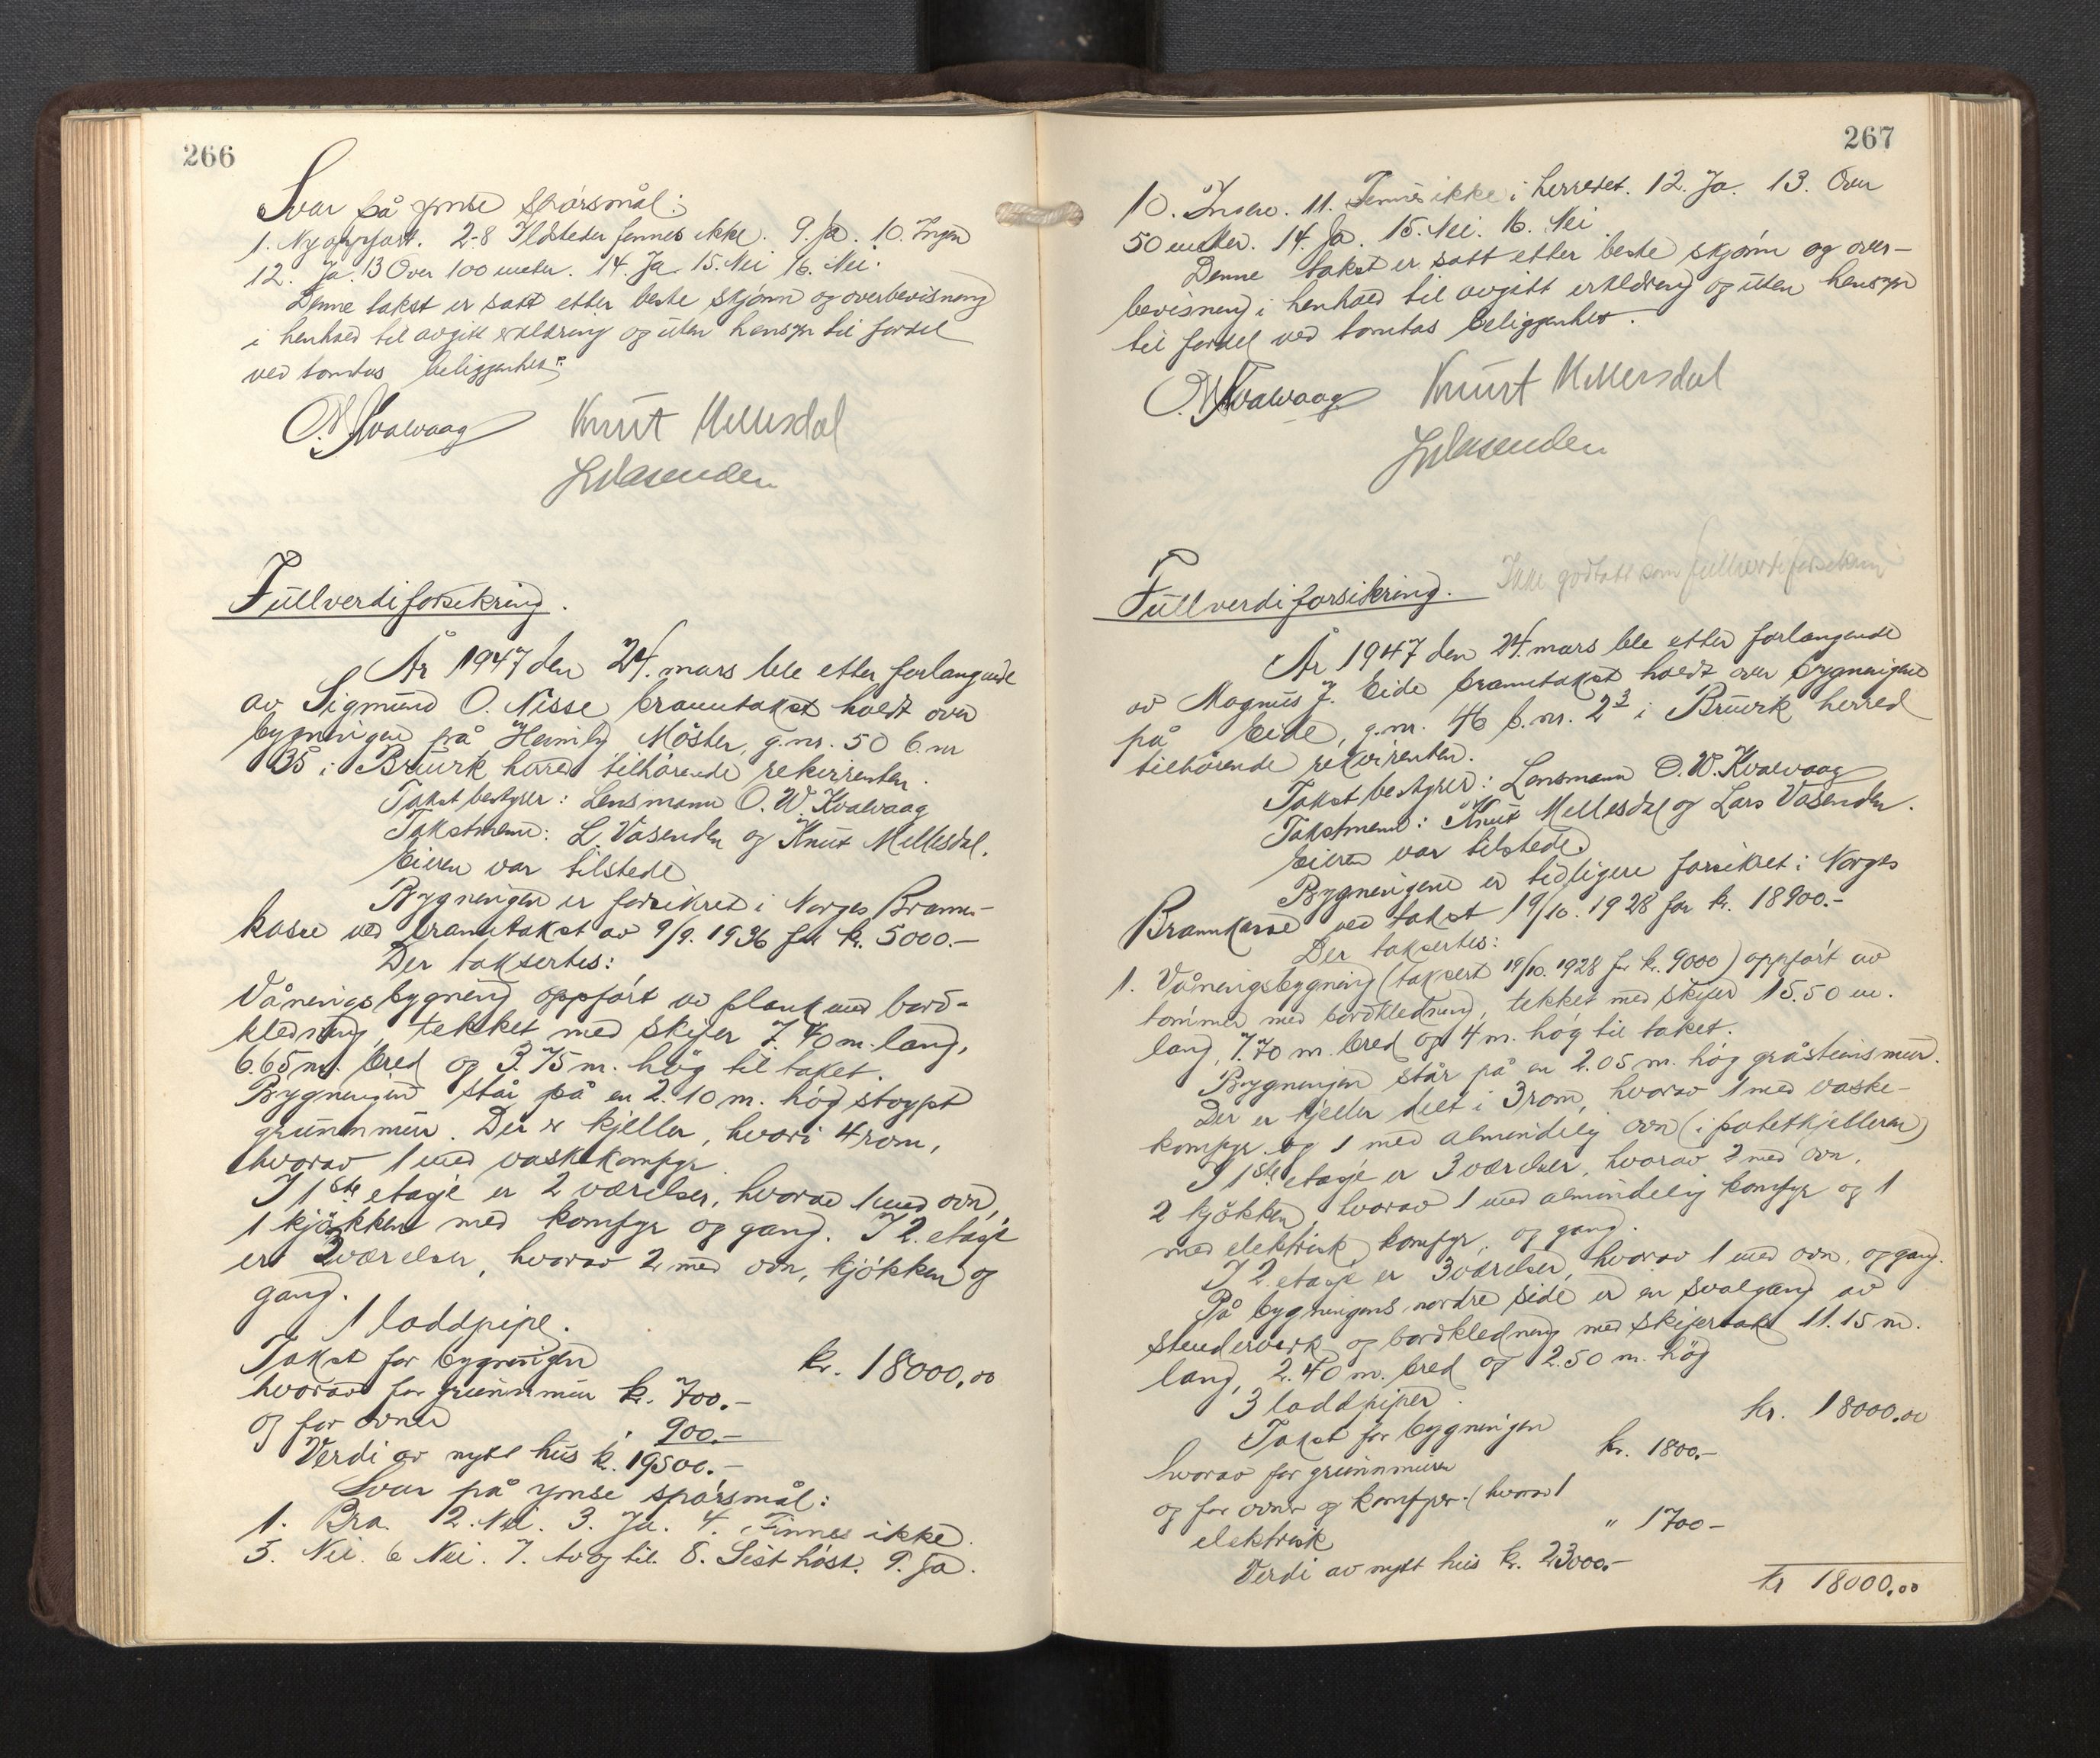 266
Svar på ymse spørsmål:
1. Ny oppført. 2-8 Ildsteder finnes ikke. 9. Ja. 10. Ingen
12. Ja 13 Over 100 meter. 14. Ja 15. Nei 16. Nei.
Denne takst er satt etter beste skjønn og overbevisning
i henhold til avgitt erklæring og uten hensyn til fordel
ved tomtas beliggenhet.
O.W. Kvalvaag Knut Millesdal
L Vasenden
Fullverdiforsikring.
År 1947 den 24. mars ble etter forlangende
av Sigmund O. Nisse branntakst holdt over
bygningen på Heimly Möster, g.nr. 50 b.nr
35 i Bruvik herred tilhørende rekvirenten.
Takstbestyrer: Lensmann O. W. Kvalvaag
Takstmenn: L. Vasenden og Knut Millesdal.
Eieren var tilstede
Bygningen er forsikret i Norges Brann-
kasse ved branntakst av 9/9. 1936 for kr. 5000.-
Der taksertes:
Våningsbygning oppført av plank med bord-
kledning, tekket med skifer 7.40 m. lang,
6.65 m. bred og 3.75 m. høg til taket.
Bygningen står på en 2.10 m. høg støypt
grunnmur. Der er kjeller, hvori 4 rom,
hvorav 1 med vaskekomfyr
I 1ste etasje er 2 værelser, hvorav 1 med ovn,
1 kjøkken med komfyr og gang. I 2. etasje
er 2 værelser, hvorav 2 med ovn, kjøkken og
gang.
1 loddpipe.
Takst for bygningen kr. 18000,00
hvorav for grunnmur kr. 700.-
og for ovner " 900.-
Verdi av nytt hus kr. 19500.-
Svar på ymse spørsmål:
1. Bra. 2. Nei. 3. Ja. 4. Finnes ikke.
5. Nei. 6 Nei. 7. av og til. 8. Sist høst. 9. Ja.
267
10. Ingen. 11. Finnes ikke i herredet. 12. Ja. 13. Over
50 meter. 14. Ja. 15. Nei. 16. Nei.
Denne takst er satt etter beste skjønn og over-
bevisning i henhold til avgitt erklæring og uten hensyn
til fordel ved tomtas beliggenhet.
O.W. Kvalvaag Knut Millesdal
L Vasenden
Fullverdiforsikring. Ikke godtatt som fullverdiforsikring
År 1947 den 24. mars ble etter forlangende
av Magnus J. Eide branntakst holdt over bygningene
på Eide, g.nr. 46 b.nr. 2 3 i Bruvik herred
tilhørende rekvirenten.
Takstbestyrer: Lensmann O. W. Kvalvaag
Takstmenn: Knut Millesdal og Lars Vasenden.
Eieren var tilstede.
Bygningene er tidligere forsikret i Norges
Brannkasse ved takst 19/10. 1928 for kr. 18900.-
Der taksertes:
1. Våningsbygning (taksert 19/10. 1928 for kr. 9000) oppført av
tømmer med bordkledning, tekket med skifer 15.50 m.
lang, 7.70 m. bred og 4 m. høg til taket.
Bygningen står på en 2.05 m. høg gråsteinsmur.
Der er kjeller delt i 3 rom, hvorav 1 med vaske-
komfyr og 1 med almindelig ovn (i potetkjelleren)
I 1ste etasje er 3 værelser, hvorav 2 med ovn,
2 kjøkken, hvorav 1 med almindelig komfyr og 1
med elektrisk komfyr, og gang.
I 2. etasje er 3 værelser, hvorav 1 med ovn, og gang.
På bygningens nordre side er en svalgang av
stenderverk og bordkledning med skifertak 11.15 m.
lang, 2.40 m. bred og 2.50 m. høg
3 loddpiper.
Takst for bygningen kr. 18000,00
hvorav for grunnmuren kr. 1800.-
og for ovner og komfyrer (hvorav 1
elektrisk " 1700-
Verdi av nytt hus kr. 23000.-
kr 18000,00